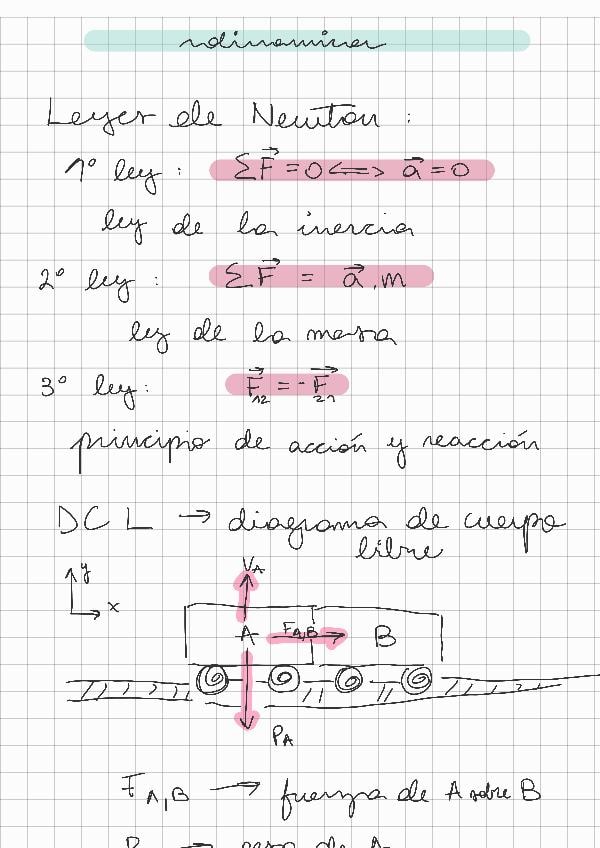 dinamica
Leyes de Newton :
1° ley : ΣF⃗ = 0 <=> a⃗ = 0
ley de la inercia
2° ley : ΣF⃗ = a⃗ . m
ley de la masa
3° ley : F⃗₁₂ = - F⃗₂₁
principio de acción y reacción
DCL → diagrama de cuerpo
libre
y
x
VA
A
FA,B
B
PA
FA,B → fuerza de A sobre B
P → peso de A